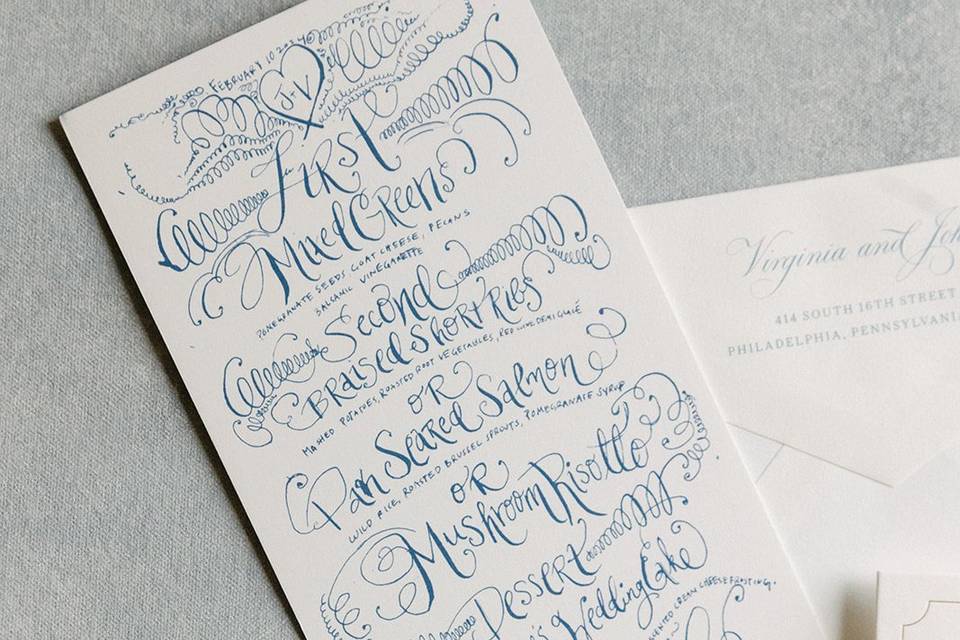 FEBRUARY 10 2024
J+V
First
Mixed Greens
POMEGRANATE SEEDS, GOAT CHEESE, PECANS
BALSAMIC VINEGARETTE
Second
BRaised Short Ribs
MASHED POTATOES, ROASTED ROOT VEGETABLES, RED WINE DEMI GLACÉ
OR
Pan Seared Salmon
WILD RICE, ROASTED BRUSSEL SPROUTS, POMEGRANATE SYRUP
OR
Mushroom Risotto
Dessert
Wedding Cake
CREAM CHEESE FROSTING.
Virginia and Joh
414 SOUTH 16TH STREET
PHILADELPHIA, PENNSYLVANIA